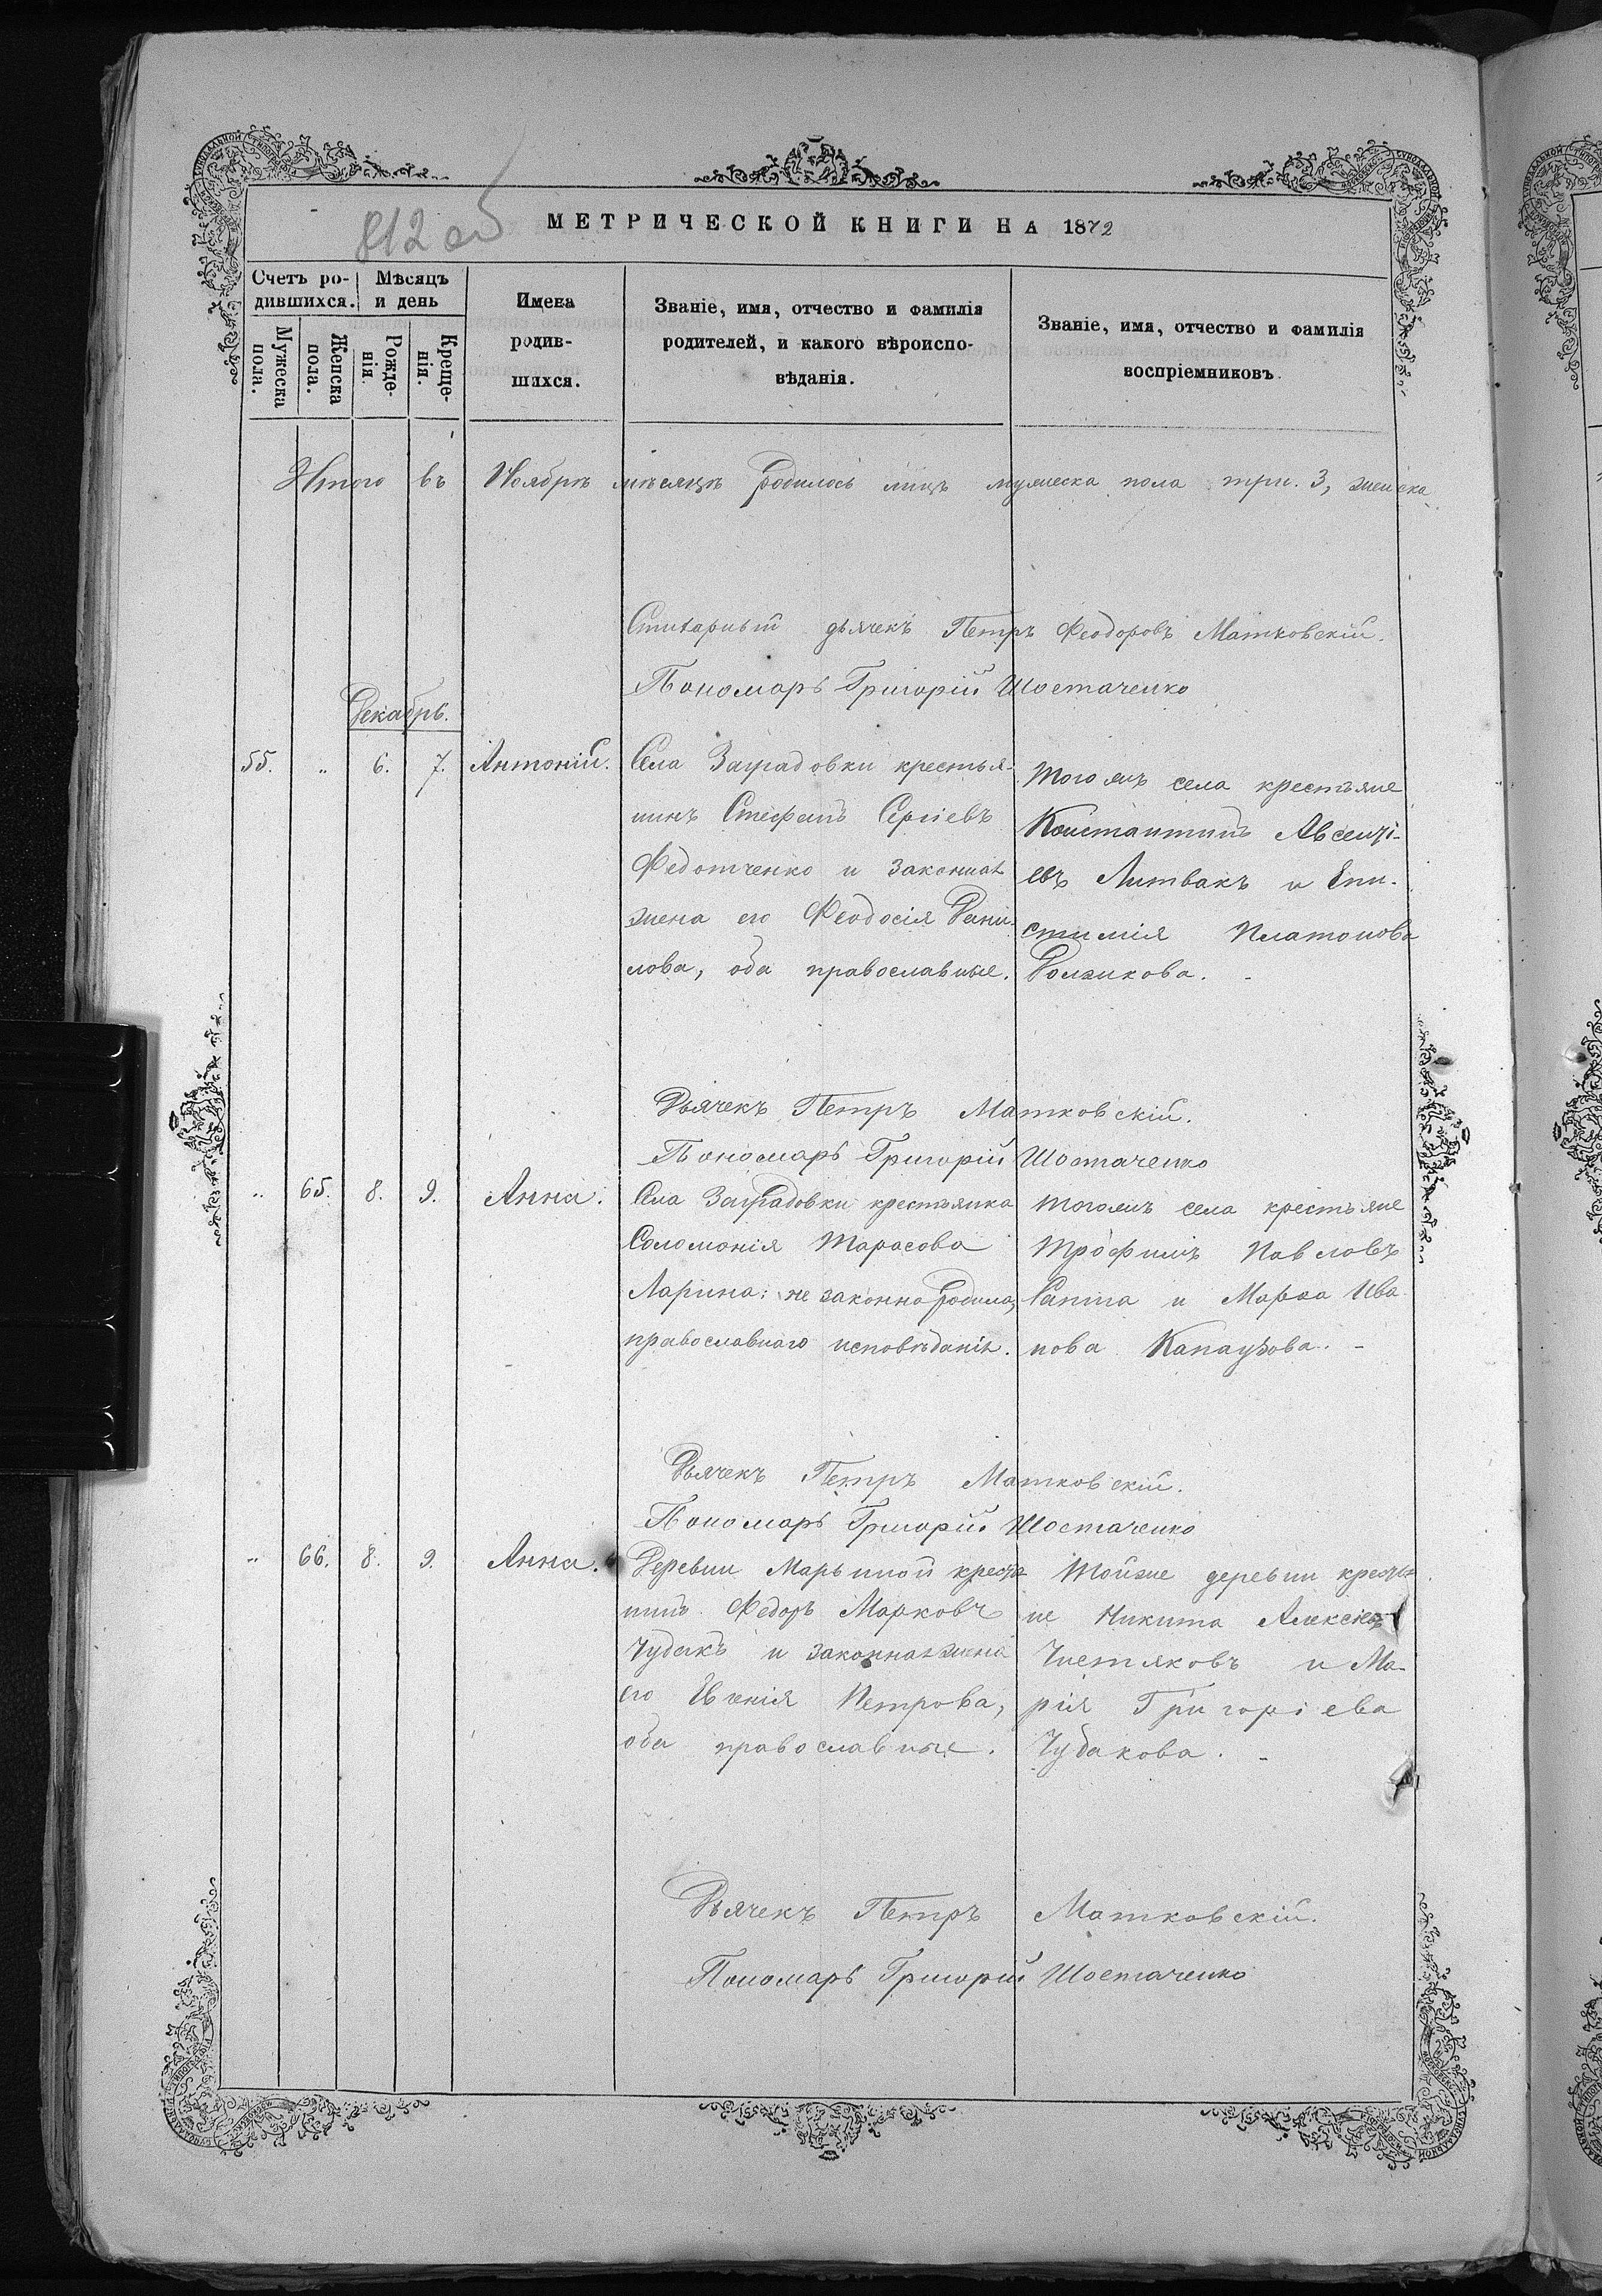 812 об
МЕТРИЧЕСКОЙ КНИГИ НА 1872
Счетъ ро-
дившихся.
Мужеска
пола.
Женска
пола.
Мѣсяцъ
и день
Рожде-
нія.
Креще-
нія.
Имена
родив-
шихся.
Званіе, имя, отчество и фамилія
родителей, и какого вѣроиспо-
вѣданія.
Званіе, имя, отчество и фамилія
воспріемниковъ.
Итого въ Ноябрѣ мѣсяцѣ родилось лицъ мужеска пола три. 3, женска
Стихарный дьячекъ Петръ Феодоровъ Матковскій.
Пономарь Григорій Шостаченко
Декабрь.
55. „ 6. 7. Антоній.
Села Заградовки крестья-
нинъ Стефанъ Сергіевъ
Федотченко и законная
жена его Феодосія Дани-
лова, оба православные.
Того жъ села крестьяне
Константинъ Авсенті-
евъ Литвакъ и Епи-
стимія Платонова
Должикова.
Дьячекъ Петръ Матковскій.
Пономарь Григорій Шостаченко
„ 65. 8. 9. Анна.
Села Заградовки крестьянка
Соломонія Тарасова
Ларина: не законно родила,
православнаго исповѣданія.
Того жъ села крестьяне
Трофимъ Павловъ
Сапта и Марѳа Ива
нова Капаузова.
Дьячекъ Петръ Матковскій.
Пономарь Григорій Шостаченко
„ 66. 8. 9. Анна.
Деревни Марьиной крестья
нинъ Федоръ Марковъ
Чубакъ и законная жена
его Евгенія Петрова,
оба православные.
Тойже деревни крестья
не Никита Алексіевъ
Чистяковъ и Ма-
рія Григоріева
Чубакова.
Дьячекъ Петръ Матковскій.
Пономарь Григорій Шостаченко